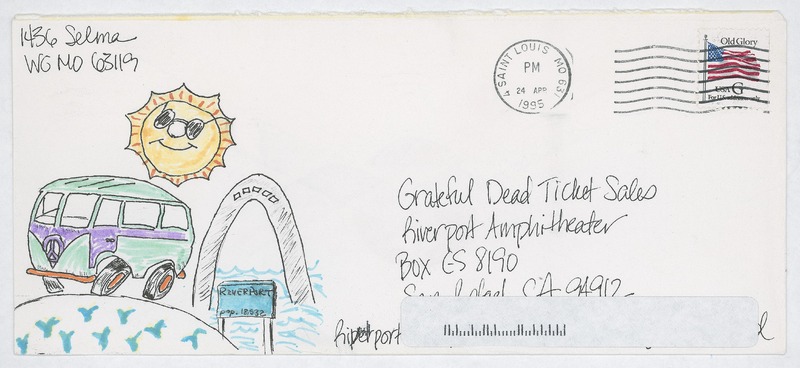 1436 Selma
WG MO 63119
SAINT LOUIS MO 631
PM
24 APR
1995
Old Glory
USA G
For U.S. addresses only
Grateful Dead Ticket Sales
Riverport Amphitheater
Box CS 8190
San Rafael CA 94912-
RIVERPORT
pop. 18,532
Riverport